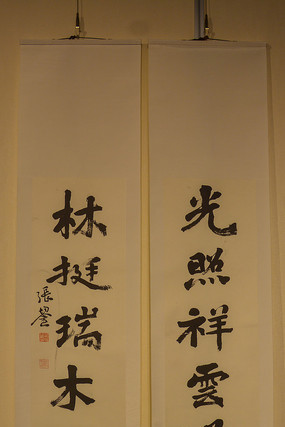 光照祥雲
林挺瑞木
張謇